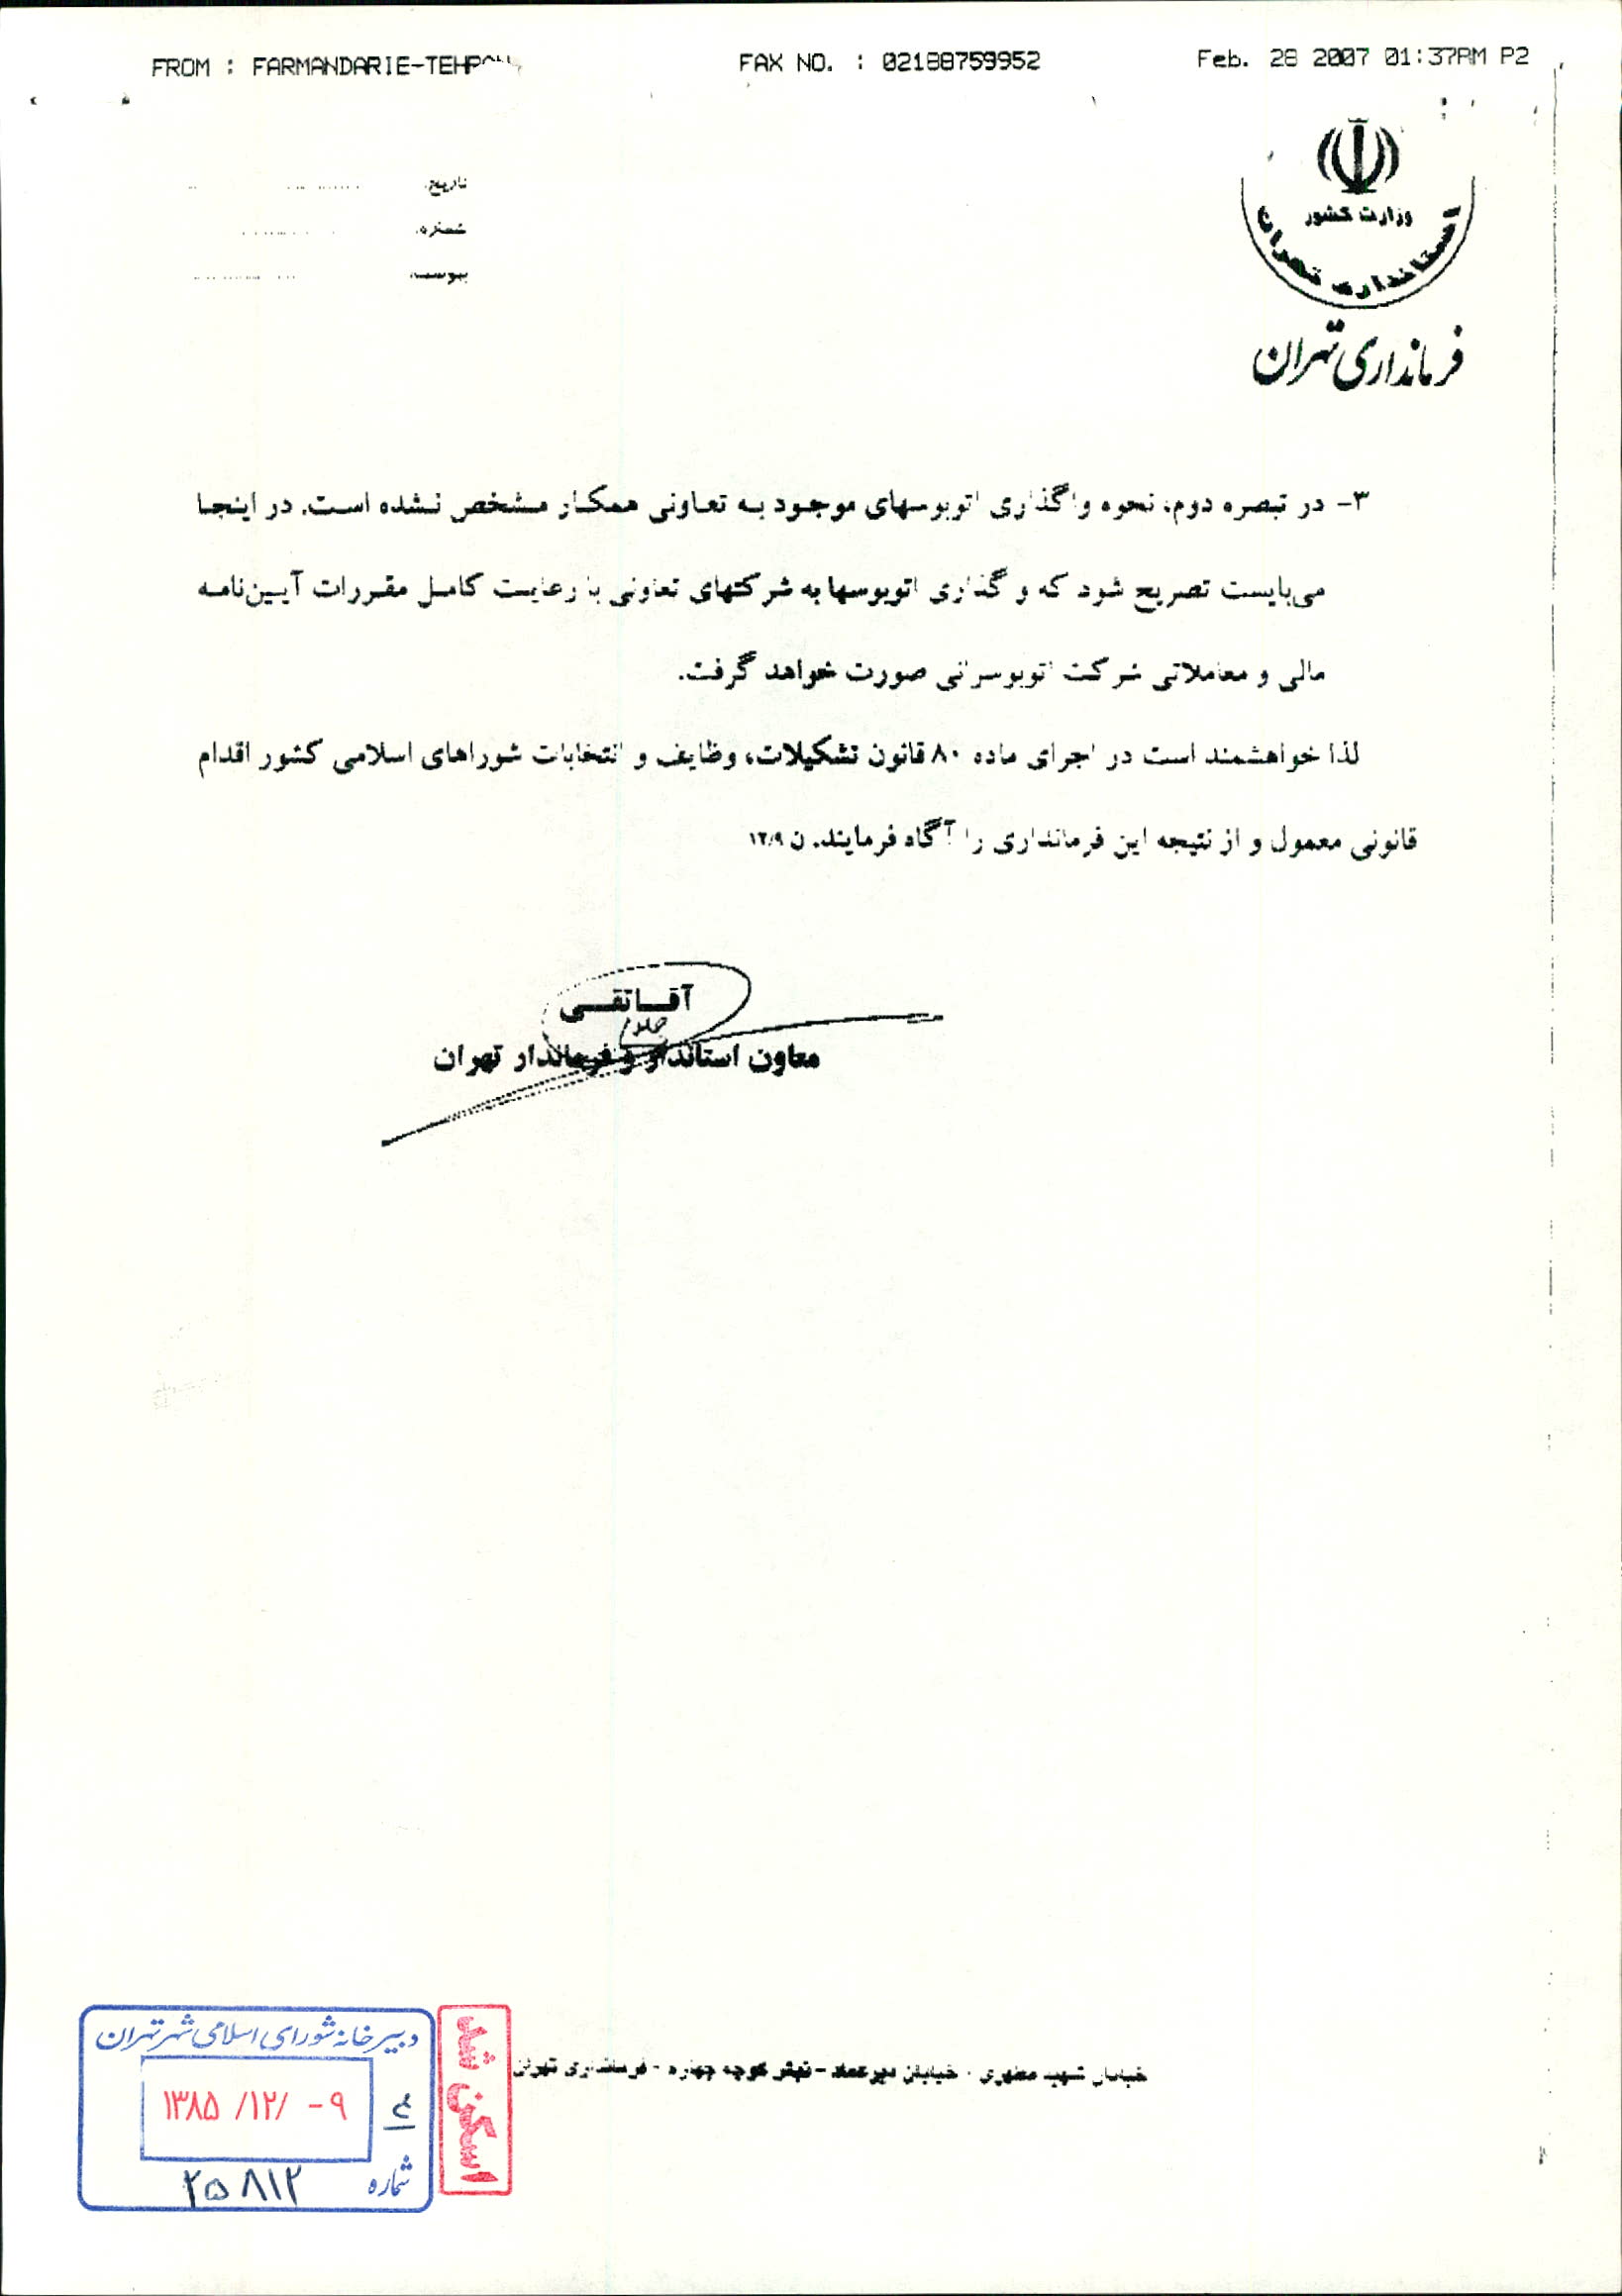 FROM : FARMANDARIE-TEHRAN FAX NO. : 02188759952 Feb. 28 2007 01:37PM P2
وزارت کشور
استانداری تهران
فرمانداری تهران
تاریخ:
شماره:
پیوست:
۳- در تبصره دوم، نحوه واگذاری اتوبوسهای موجود به تعاونی همکار مشخص نشده است. در اینجا
می‌بایست تصریح شود که واگذاری اتوبوسها به شرکتهای تعاونی با رعایت کامل مقررات آیین‌نامه
مالی و معاملاتی شرکت اتوبوسرانی صورت خواهد گرفت.
لذا خواهشمند است در اجرای ماده ۸۰ قانون تشکیلات، وظایف و انتخابات شوراهای اسلامی کشور اقدام
قانونی معمول و از نتیجه این فرمانداری را آگاه فرمایند. ن ۱۲/۹
آقاتقی
معاون استاندار و فرماندار تهران
خیابان شهید مطهری - خیابان میرعماد - نبش کوچه چهارم - فرمانداری تهران
اسکن شد
دبیرخانه شورای اسلامی شهر تهران
۱۳۸۵ /۱۲/ -۹
شماره ۲۵۸۱۲